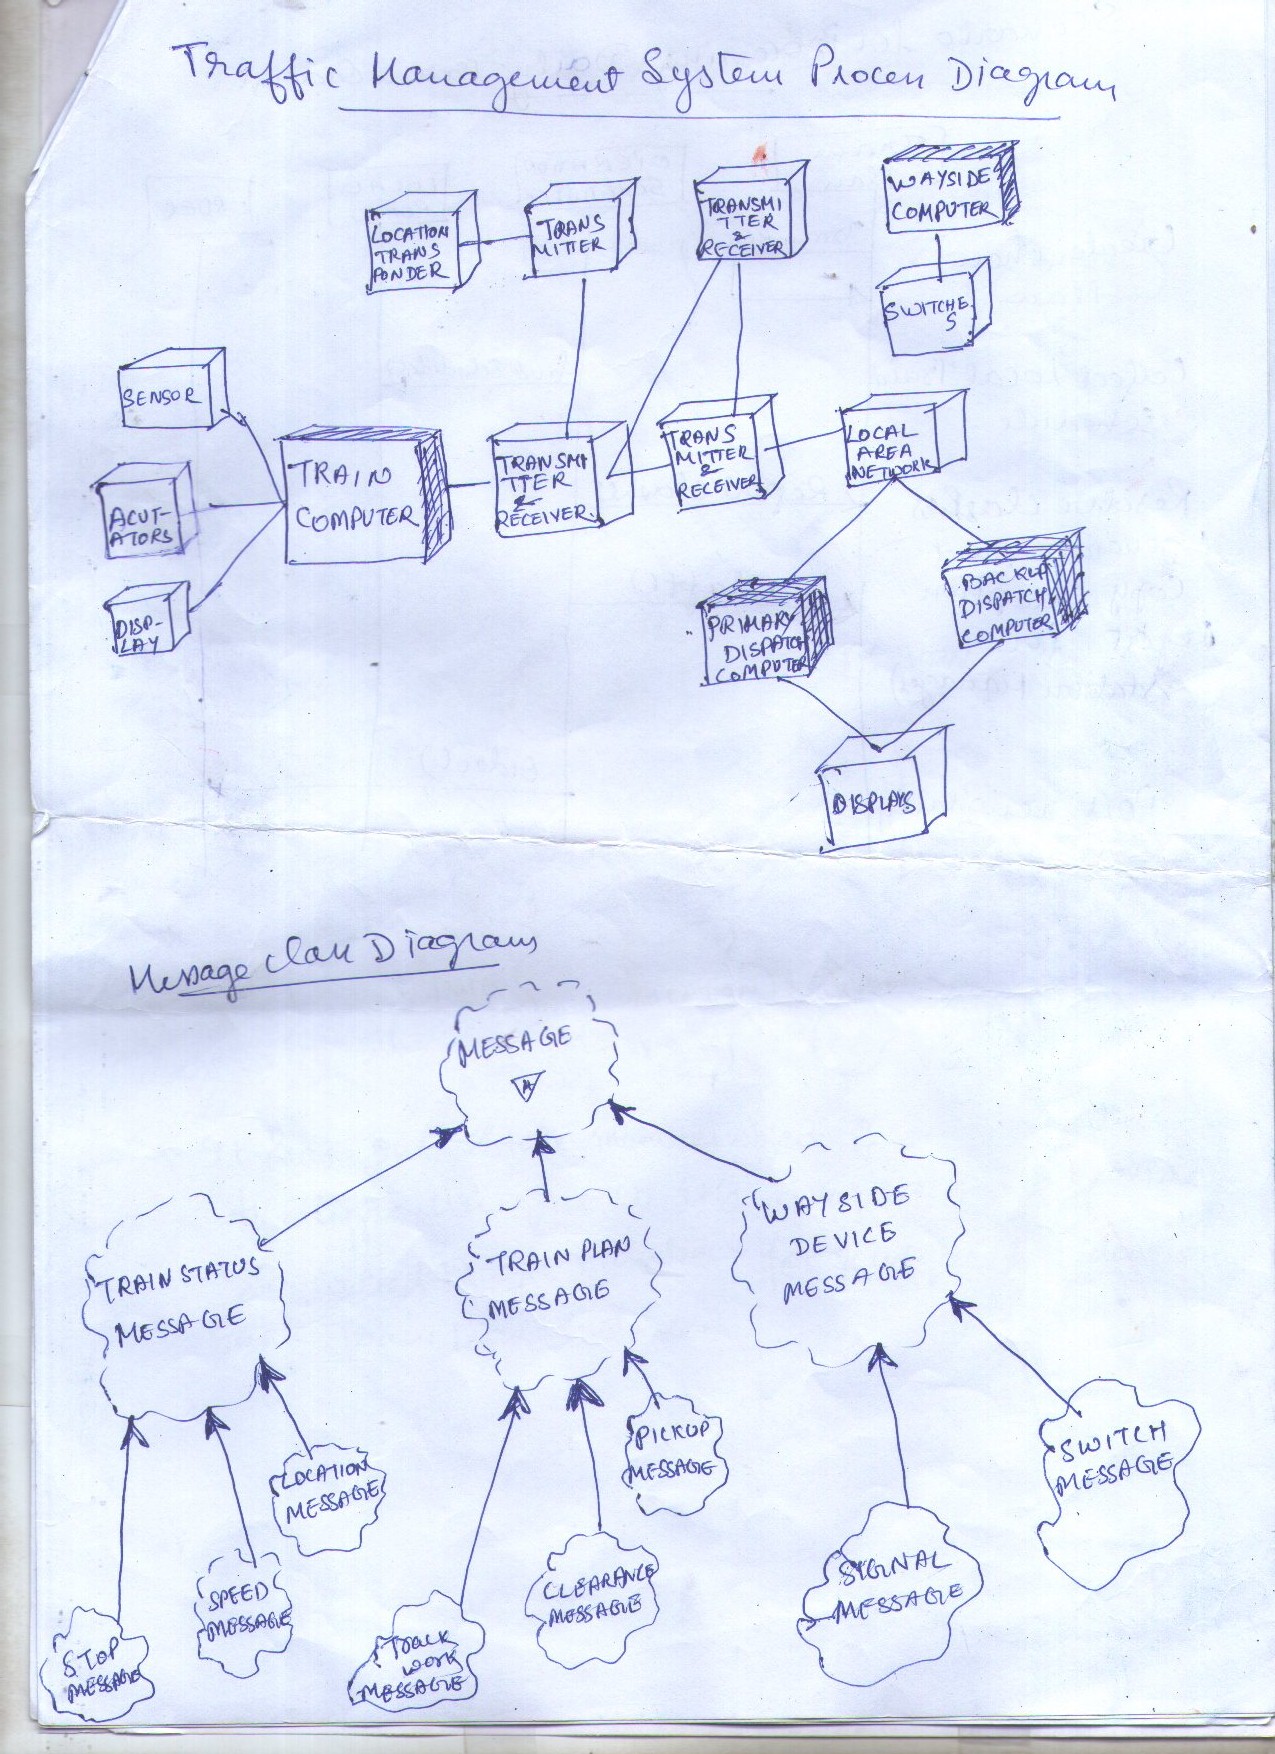 Traffic Management System Process Diagram
LOCATION
TRANS
PONDER
TRANS
MITTER
TRANSMI
TTER
&
RECEIVER
WAYSIDE
COMPUTER
SWITCHE
S
SENSOR
ACUT-
ATORS
DISP-
LAY
TRAIN
COMPUTER
TRANSMI
TTER
&
RECEIVER
TRANS
MITTER
&
RECEIVER
LOCAL
AREA
NETWORK
PRIMARY
DISPATCH
COMPUTER
BACKUP
DISPATCH
COMPUTER
DISPLAYS
Message Class Diagram
MESSAGE
A
TRAIN STATUS
MESSAGE
TRAIN PLAN
MESSAGE
WAYSIDE
DEVICE
MESSAGE
LOCATION
MESSAGE
PICKUP
MESSAGE
SWITCH
MESSAGE
SPEED
MESSAGE
CLEARANCE
MESSAGE
SIGNAL
MESSAGE
STOP
MESSAGE
TRACK
WORK
MESSAGE